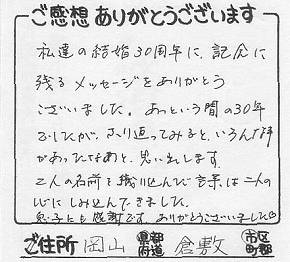 ご感想 ありがとうございます
私達の結婚30周年に、記念に
残るメッセージをありがとう
ございました。あっという間の30年
でしたが、ふり返ってみると、いろんな事
があったなあと、思い出します。
二人の名前を織り込んだ言葉は二人の
心にしみ込んできました。
息子にも感謝です。ありがとうございました
ご住所 岡山 県都府道 倉敷 市区町郡